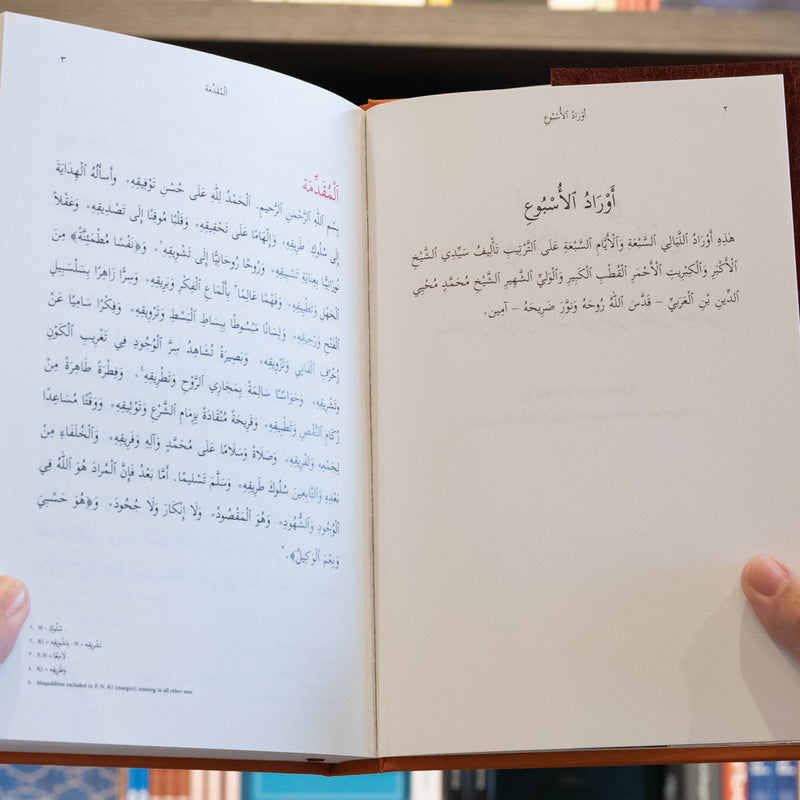 ٢
أَوْرَادُ ٱلأُسْبُوعِ
أَوْرَادُ ٱلأُسْبُوعِ
هٰذِهِ أَوْرَادُ ٱللَّيَالِي ٱلسَّبْعَةِ وَٱلأَيَّامِ ٱلسَّبْعَةِ عَلَى ٱلتَّرْتِيبِ تَأْلِيفُ سَيِّدِي ٱلشَّيْخِ
ٱلأَكْبَرِ وَٱلْكِبْرِيتِ ٱلأَحْمَرِ ٱلْقُطْبِ ٱلْكَبِيرِ وَٱلْوَلِيِّ ٱلشَّهِيرِ ٱلشَّيْخِ مُحَمَّدٍ مُحْيِي
ٱلدِّينِ بْنِ ٱلْعَرَبِيِّ – قَدَّسَ ٱللهُ رُوحَهُ وَنَوَّرَ ضَرِيحَهُ – آمِين.
٣
ٱلْمُقَدِّمَة
ٱلْمُقَدِّمَة
بِسْمِ ٱللهِ ٱلرَّحْمٰنِ ٱلرَّحِيمِ. ٱلْحَمْدُ لِلّٰهِ عَلَى حُسْنِ تَوْفِيقِهِ، وَأَسْأَلُهُ ٱلْهِدَايَةَ
إِلَى سُلُوكِ١ طَرِيقِهِ، وَإِلْهَامًا عَلَى تَحْقِيقِهِ، وَقَلْبًا مُوقِنًا إِلَى تَصْدِيقِهِ، وَعَقْلاً
نُورَانِيًّا بِعِنَايَةِ تَسْبِيقِهِ، وَرُوحًا رُوحَانِيًّا إِلَى تَشْوِيقِهِ٢، وَ﴿نَفْسًا مُطْمَئِنَّةً﴾ مِنَ
ٱلْجَهْلِ وَتَطْبِيقِهِ، وَفَهْمًا عَالِمًا٣ بِأَلْمَاعِ ٱلْفِكْرِ وَبَرِيقِهِ، وَسِرًّا زَاهِرًا بِسَلْسَبِيلِ
ٱلْفَتْحِ وَرَحِيقِهِ، وَلِسَانًا مَبْسُوطًا بِبِسَاطِ ٱلْبَسْطِ وَتَرْوِيقِهِ، وَفِكْرًا سَامِيًا عَنْ
زُخْرُفِ ٱلْفَانِي وَتَزْوِيقِهِ، وَبَصِيرَةً تُشَاهِدُ سِرَّ ٱلْوُجُودِ فِي تَغْرِيبِ ٱلْكَوْنِ
وَتَشْرِيقِهِ، وَحَوَاسًّا سَالِمَةً بِمَجَارِي ٱلرُّوْحِ وَتَطْرِيقِهِ٤، وَفِطْرَةً طَاهِرَةً مِنْ
زُكَامِ ٱلنَّقْصِ وَتَطْبِيقِهِ، وَقَرِيحَةً مُنْقَادَةً بِزِمَامِ ٱلشَّرْعِ وَتَوْثِيقِهِ، وَوَقْتًا مُسَاعِدًا
لِجَمْعِهِ وَتَفْرِيقِهِ، وَصَلَاةً وَسَلَامًا عَلَى مُحَمَّدٍ وَآلِهِ وَفَرِيقِهِ، وَٱلْخُلَفَاءِ مِنْ
بَعْدِهِ وَٱلتَّابِعِينَ سُلُوكَ طَرِيقِهِ، وَسَلَّمَ تَسْلِيمًا. أَمَّا بَعْدُ فَإِنَّ ٱلْمُرَادَ هُوَ ٱللهُ فِي
ٱلْوُجُودِ وَٱلشُّهُودِ، وَهُوَ ٱلْمَقْصُودُ، وَلَا إِنْكَارَ وَلَا جُحُودَ، وَ﴿هُوَ حَسْبِيَ
وَنِعْمَ ٱلْوَكِيلُ﴾.٥
١. N – سُلُوكِ.
٢. R1 = بِتَشْوِيقِهِ ; N = تَشْرِيقِهِ.
٣. P, N = لَامِعًا.
٤. R1 = وَطَرِيقِهِ.
٥. Muqaddima included in P, N, R1 (margin); missing in all other mss.